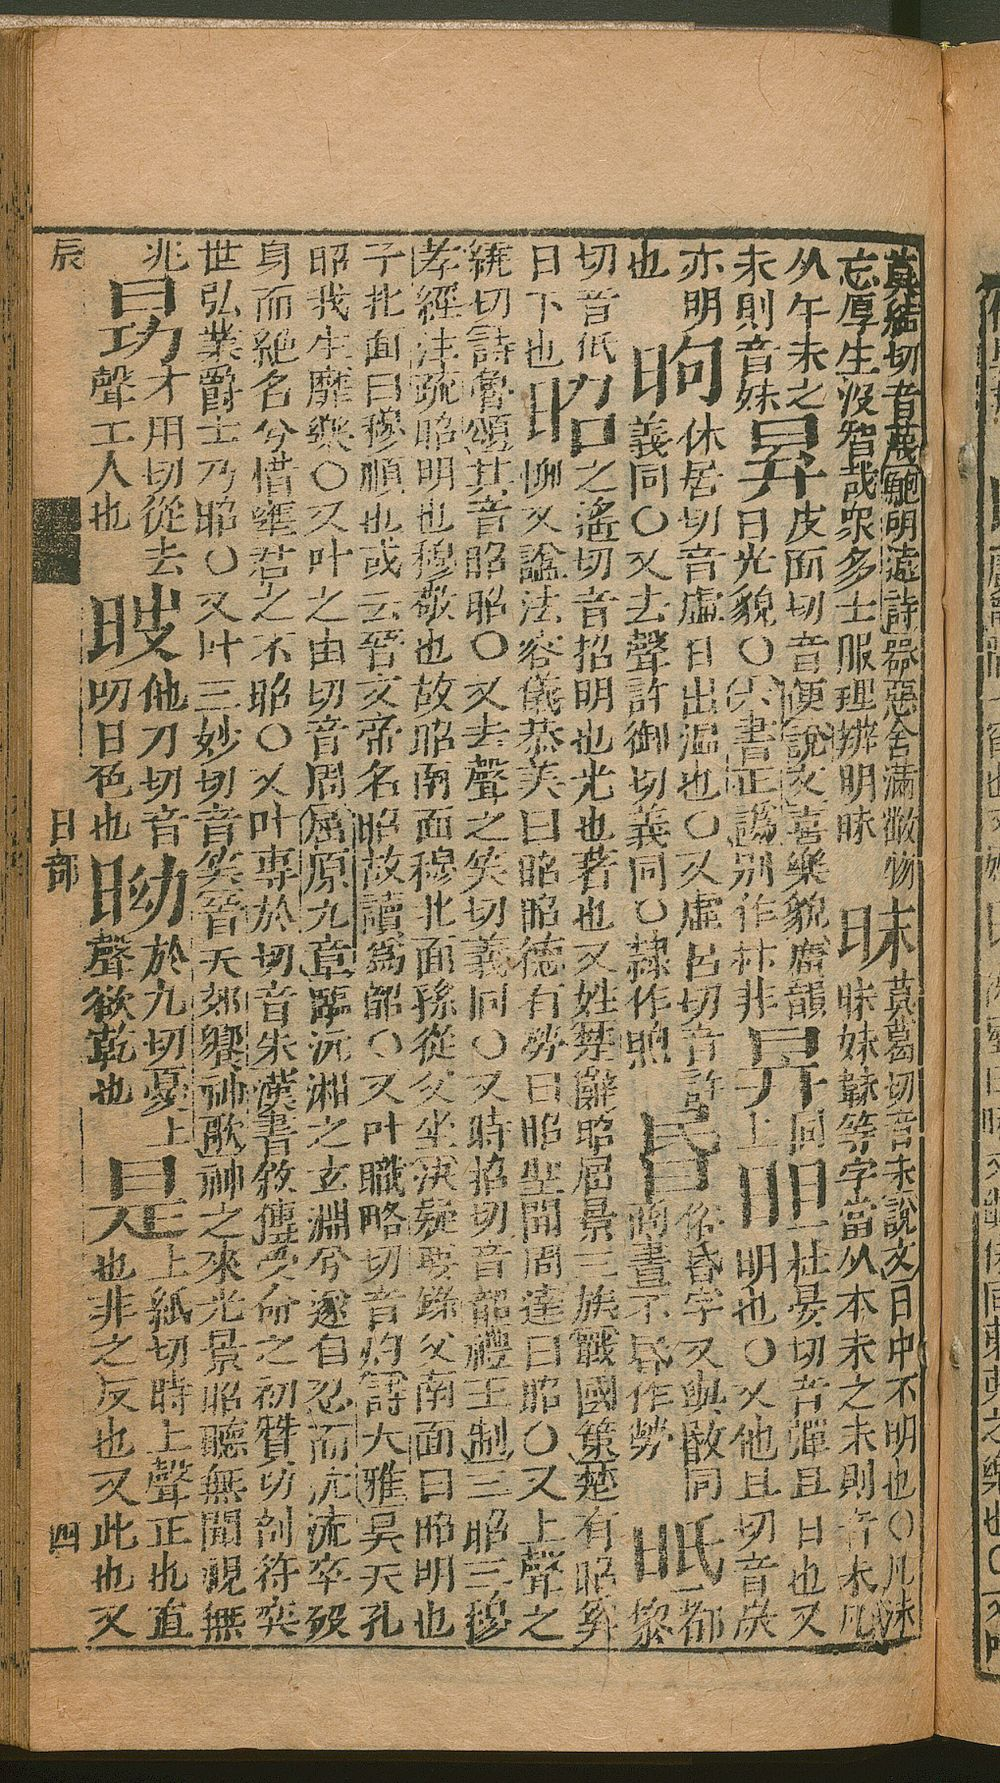 莫結切音蔑鮑明遠詩器惡含滿欹物 昩 莫葛切音末說文日中不明也○凡沬
忘厚生沒智哉眾多士服理辨明昧 昧妹韎等字當从本末之末則音末凡
从午未之 昪 皮面切音便說文喜樂貌廣韻 同 一杜晏切音彈且日也又
未則音妹 日光貌○六書正譌別作昪非 上 明也○又他且切音炭
亦明 昫 休居切音虛日出溫也○又虛呂切音許 昬 俗昏字又與敃同 昣 都
也 義同○又去聲許御切義同○隸作煦 商書不昬作勞 黎
切音低 昭 之遙切音招明也光也著也又姓楚辭昭屈景三族戰國策楚有昭奚
日下也 恤又諡法容儀恭美曰昭昭德有勞曰昭聖聞周達曰昭○又上聲之
繞切詩魯頌其音昭昭○又去聲之笑切義同○又時招切音韶禮王制三昭三穆
孝經注疏昭明也穆敬也故昭南面穆北面孫從父坐決疑要錄父南面曰昭明也
子北面曰穆順也或云晉文帝名昭故讀爲韶○又叶職略切音灼詩大雅昊天孔
昭我生靡樂○又叶之由切音周屈原九章臨沅湘之玄淵兮遂自忍而沉流卒殁
身而絕名兮惜壅君之不昭○又叶專於切音朱漢書敘傳受命之初贊功剖符奕
世弘業爵土乃昭○又叶三妙切音笑晉天郊饗神歌神之來光景昭聽無聞視無
兆 才用切從去 他刀切音 於九切憂上 是 上紙切時上聲正也直
聲工人也 叨日色也 聲欲乾也 也非之反也又此也又
辰 日部 四